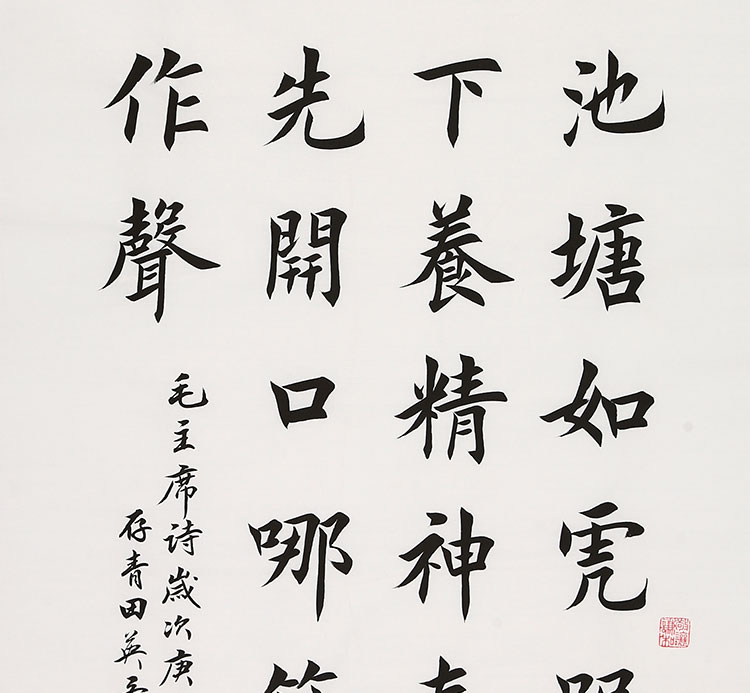 池塘如虎
下養精神
先開口哪
作聲
毛主席詩歲次庚
存青田英